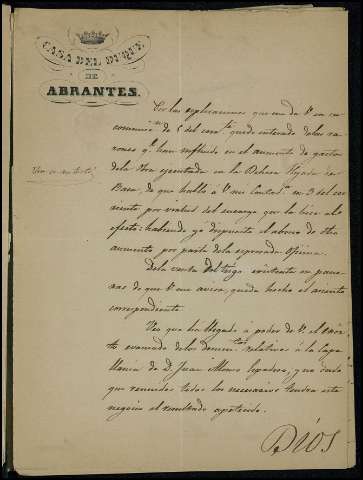 CASA DEL DUQUE
DE
ABRANTES.
Por las esplicaciones que me da V. en su
comunicn. de 6 del corrte. quedo enterado de las ra-
zones qe. han influido en el aumento de gastos
de la obra ejecutada en la Dehesa
de que habló á V. mi Contadn. en 3 del cor-
riente por virtud del encargo que la hice al
efecto: habiendo ya dispuesto el abono de otro
aumento por parte de la espresada oficina.
De la venta del trigo existente en pane-
ras de que V. me avisa, queda hecho el asiento
correspondiente.
Veo que ha llegado á poder de V. el
evacuado de los documtos. relativos á la Cape-
llanía de D. Juan Alonso y no dudo
que reunidos todos los necesarios tendrá este
negocio el resultado apetecido.
Dios